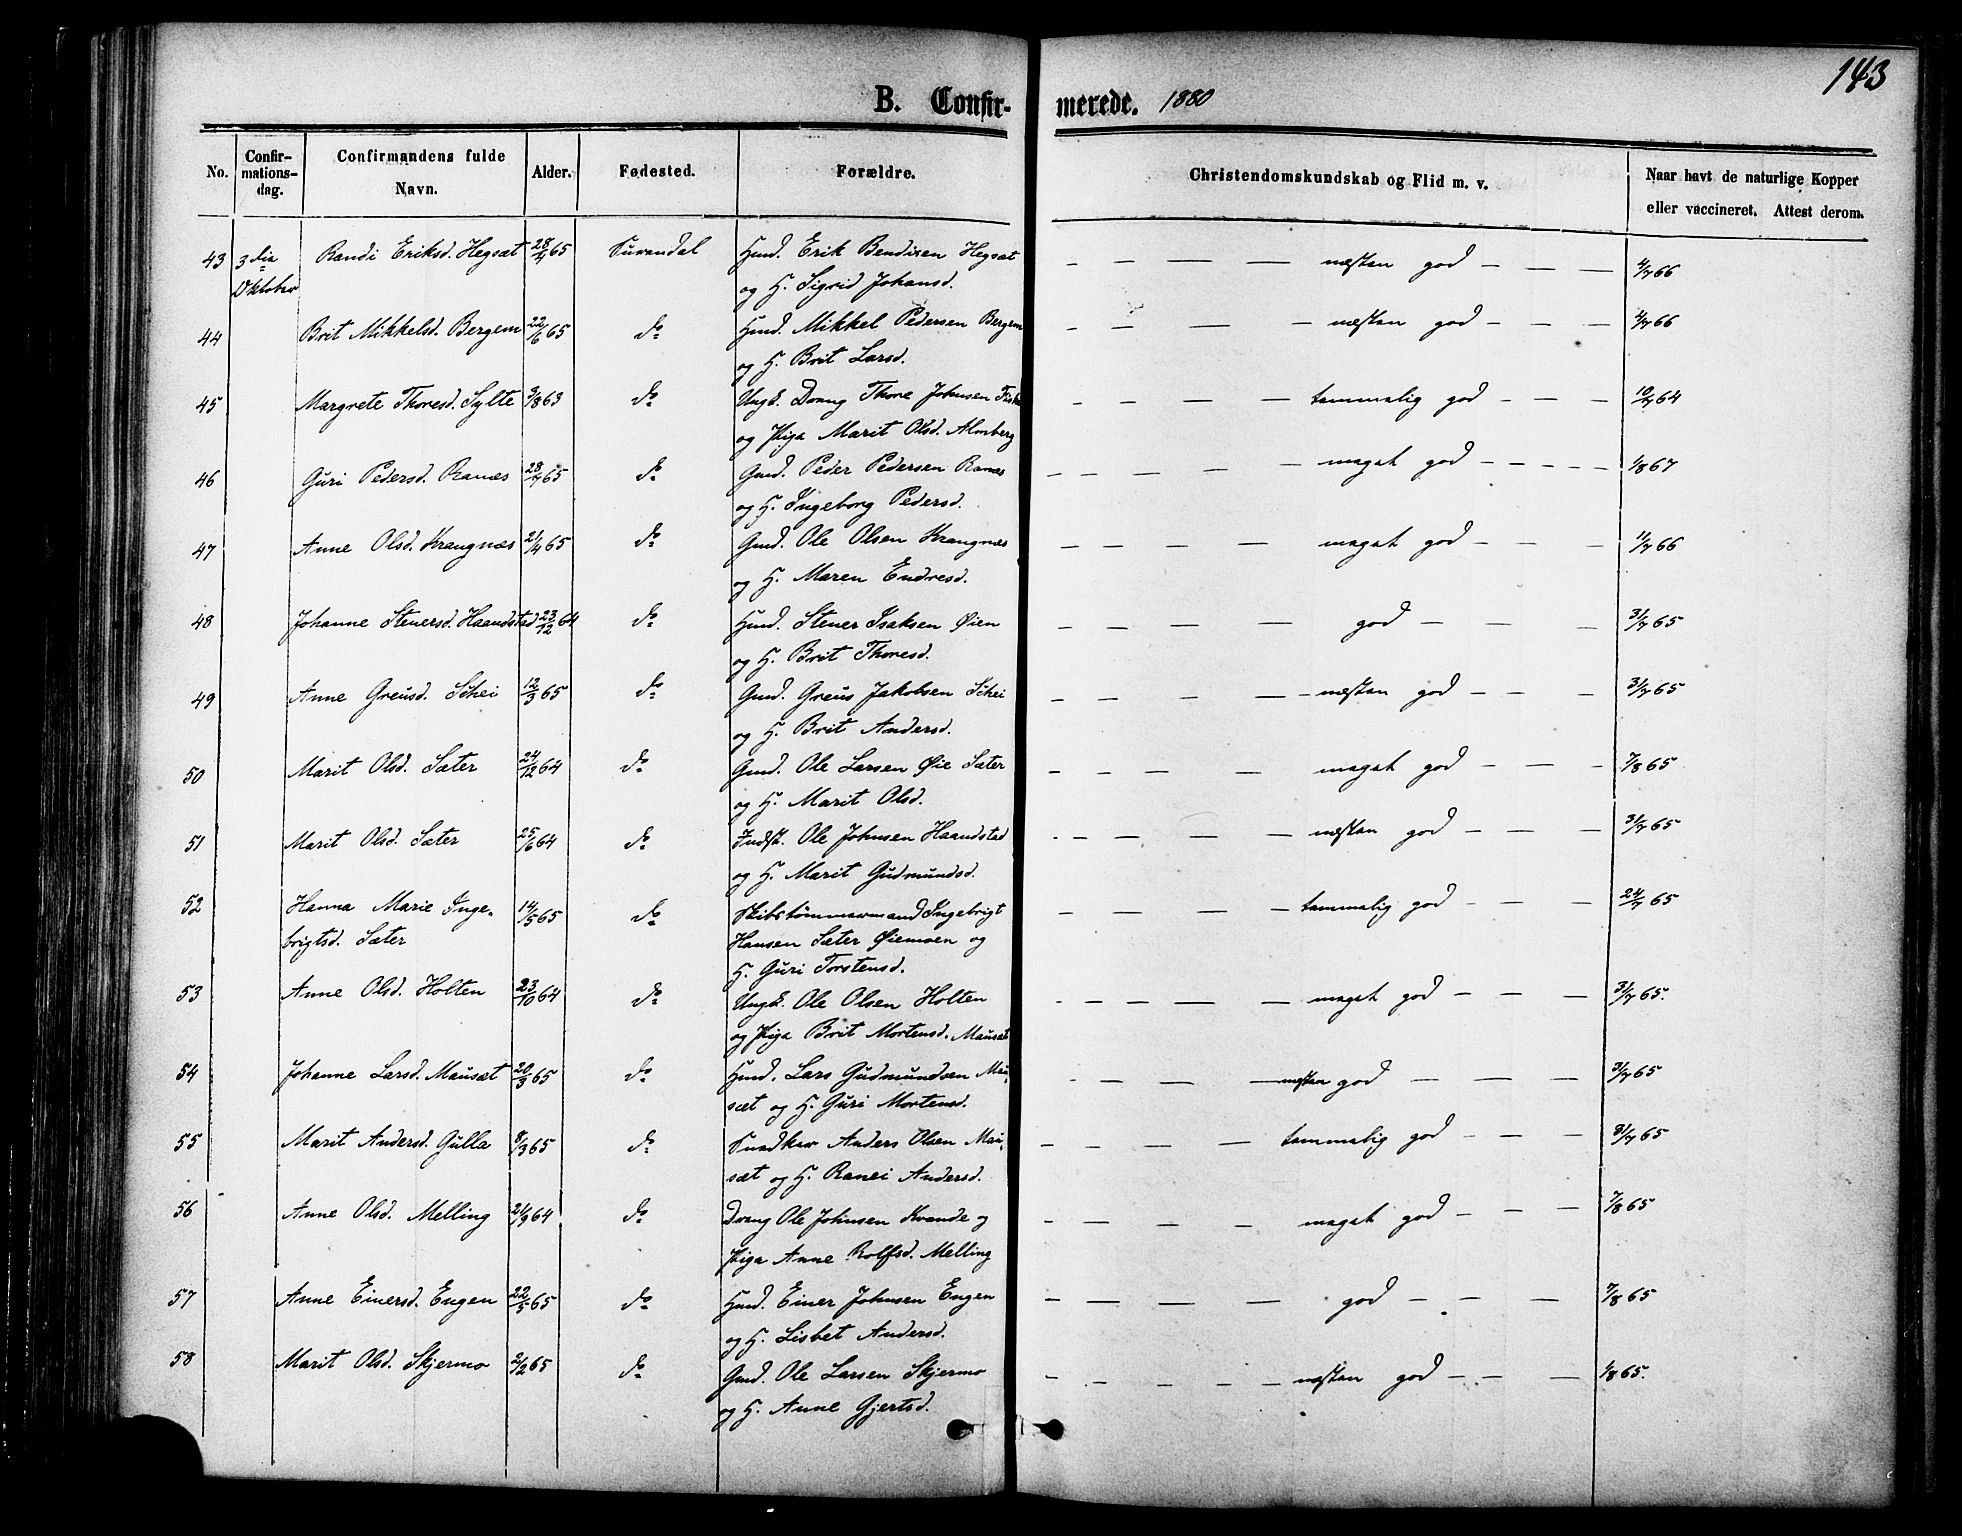 143
B. Confirmerede. 1880
No. Confirmations-dag. Confirmandens fulde Navn. Alder. Fødested. Forældre. Christendomskundskab og Flid m. v. Naar havt de naturlige Kopper eller vaccineret. Attest derom.
43 3die Randi Eriksd. Hegsæt 28/4 65 Surendal Hmd. Erik Bendixen Hegsæt — — — — næsten god — — — 4/7 66
Oktober og H. Sigrid Johansd.
44 Brit Mikkelsd. Bergem 22/6 65 do Hmd. Mikkel Pedersen Bergem — — — — næsten god — — — 4/7 66
og H. Brit Larsd.
45 Margrete Thoresd. Sylte 3/8 63 do Ungk. Dreng Thore Johnsen — — — — temmelig god — — — 10/7 64
og Piga Marit Olsd. Almberg
46 Guri Pedersd. Ranæs 28/7 65 do Gmd. Peder Pedersen Ranæs — — — — meget god — — — — 1/8 67
og H. Ingeborg Pedersd.
47 Anne Olsd. Krangnæs 21/4 65 do Gmd. Ole Olsen Krangnæs — — — — meget god — — — 11/7 66
og H. Maren Endresd.
48 Johanne Stenersd. Haandstad 23/12 64 do Hmd. Stener Isaksen Øien — — — — god — — — 31/7 65
og H. Brit Thoresd.
49 Anne Greusd. Schei 12/3 65 do Gmd. Greus Jakobsen Schei — — — — næsten god — — — 31/7 65
og H. Brit Andersd.
50 Marit Olsd. Sæter 24/12 64 do Gmd. Ole Larsen Øie Sæter — — — — meget god — — — 7/8 65
og H. Marit Olsd.
51 Marit Olsd. Sæter 25/6 64 do Indst. Ole Johnsen Haandstad — — — — næsten god — — — 31/7 65
og H. Marit Gudmundsd.
52 Hanna Marie Inge- 14/5 65 do Skibstømmermand Ingebrigt — — — — temmelig god — — — 24/7 65
brigtsd. Sæter Hansen Sæter Øiemoen og
H. Guri Torstensd.
53 Anne Olsd. Holten 23/10 64 do Ungk. Ole Olsen Holten — — — — meget god — — — 31/7 65.
og Piga Brit Mortensd. Mausæt
54 Johanne Larsd. Mausæt 20/3 65 do Hmd. Lars Gudmundsen Mau- — — — — næsten god — — — 31/7 65
sæt og H. Guri Mortensd.
55 Marit Andersd. Gulla 8/3 65 do Snedker Anders Olsen Mau- — — — — temmelig god — — — 31/7 65
sæt og H. Ranei Andersd.
56 Anne Olsd. Melling 21/9 64 do Dreng Ole Johnsen Kvande og — — — — meget god — — — 7/8 65
Piga Anne Rolfsd. Melling
57 Anne Einersd. Engen 22/5 65 do Hmd. Einer Johnsen Engen — — — — god — — — 7/8 65
og H. Lisbet Andersd.
58 Marit Olsd. Skjermo 2/2 65 do Gmd. Ole Larsen Skjermo — — — — — næsten god — — — 1/8 65.
og H. Anne Gjertsd.